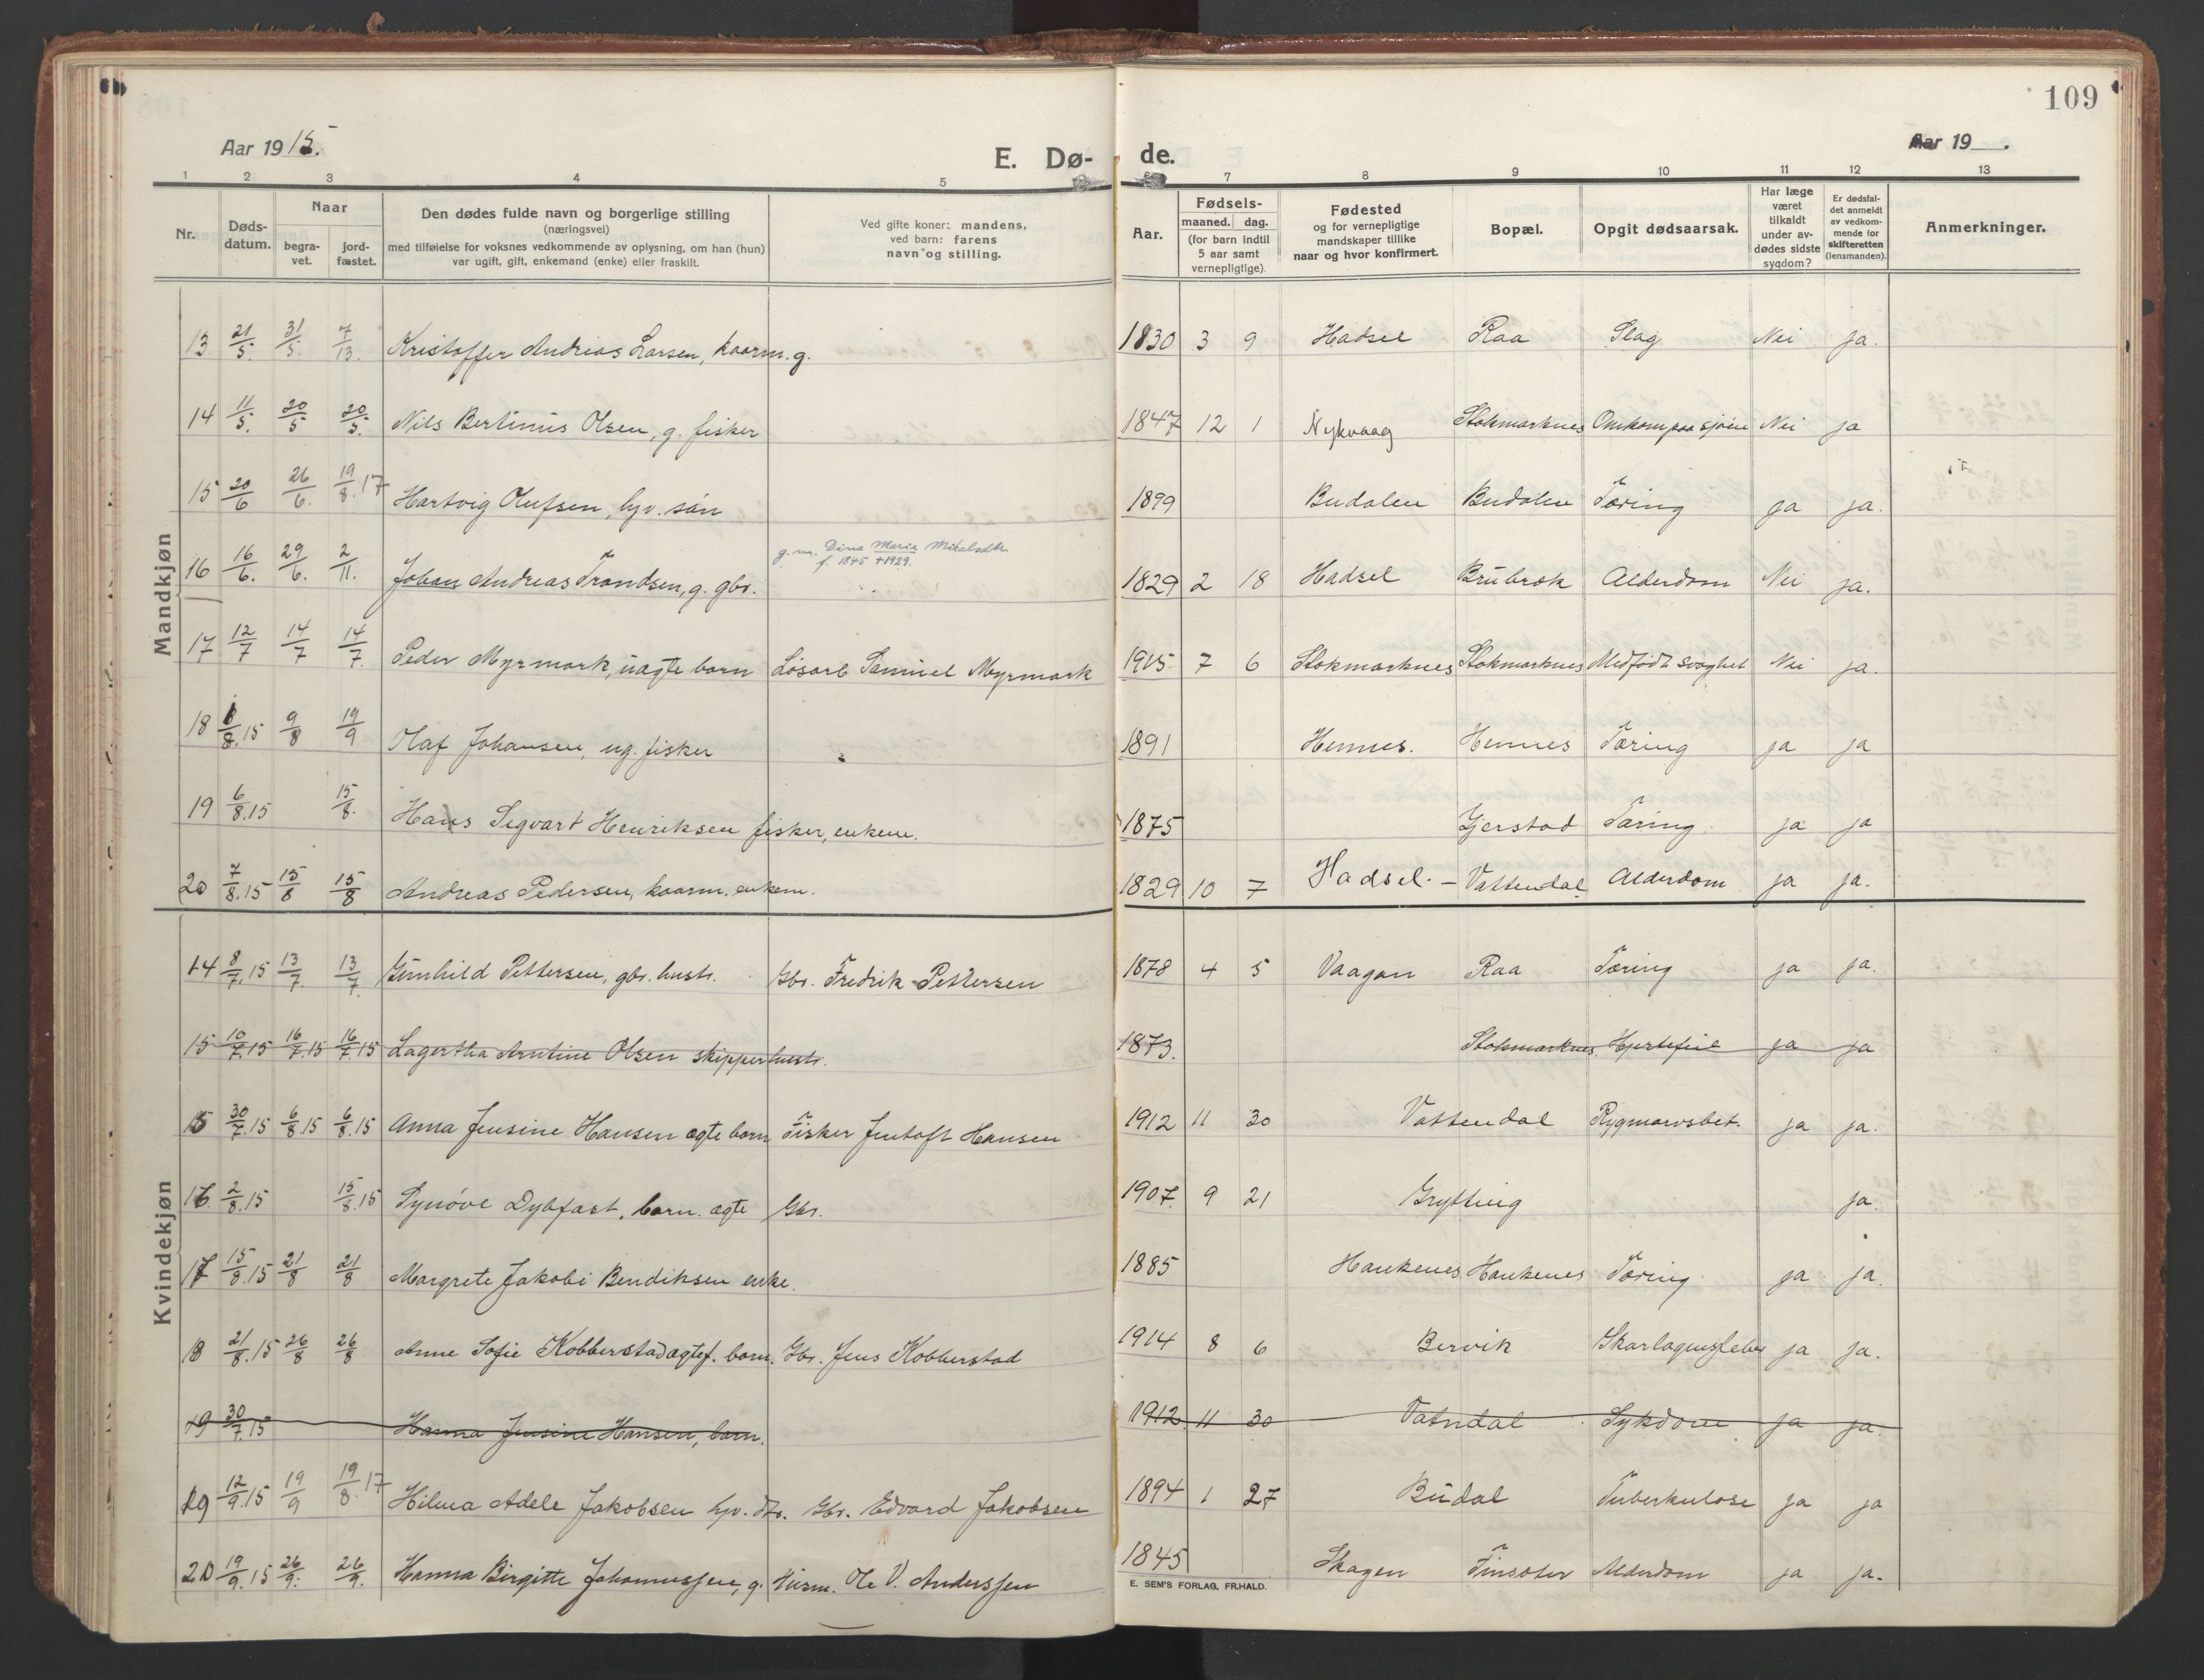 109
Aar 1915.
E. Dø- de.
Aar 19 .
1 2 3 4 5 6 7 8 9 10 11 12 13
Nr. Døds-datum. Naar begra-vet. jord-fæstet. Den dødes fulde navn og borgerlige stilling (næringsvei) med tilføielse for voksnes vedkommende av oplysning, om han (hun) var ugift, gift, enkemand (enke) eller fraskilt. Ved gifte koner: mandens, ved barn: farens navn og stilling. Aar. Fødsels- maaned. dag. (for barn indtil 5 aar samt vernepligtige). Fødested og for vernepligtige mandskaper tillike naar og hvor konfirmert. Bopæl. Opgit dødsaarsak. Har læge været tilkaldt under av-dødes sidste sygdom? Er dødsfal-det anmeldt av vedkom-mende for skifteretten (lensmanden). Anmerkninger.
Mandkjøn
13 21/5. 31/5. 7/13. Kristoffer Andreas Larsen, kaarm. g. 1830 3 9 Hadsel Raa Slag Nei ja.
14 11/5. 20/5 20/5. Nils Bertinius Olsen, g. fisker 1847 12 1 Nykvaag Stokmarknes Omkom paa sjøen Nei ja
15 20/6 26/6. 19/8.17 Hartvig Olufsen, hjv. søn 1899 Budalen Budalen Tæring ja ja.
g.m. Dina Maria Mikalsdtr.
f. 1845 +1929.
16 16/6. 29/6. 2/11. Johan Andreas Trondsen, g. gbr. 1829 2 18 Hadsel Brubræk Alderdom Nei ja.
17 12/7 14/7 14/7. Peder Myrmark, uægte barn Løsarb Samuel Myrmark 1915 7 6 Stokmarknes Stokmarknes Medfødt svaghet Nei ja.
18 8/8.15 9/8 19/9 Olaf Johansen, ug. fisker 1891 Hennes. Hennes Tæring ja ja
19 6/8.15 15/8. Hans Sigvart Henriksen fisker, enkem. 1875 Gjerstad Tæring. ja ja
20 7/8.15 15/8 15/8 Andreas Pedersen, kaarm. enkem. 1829 10 7 Hadsel. – Vattendal Alderdom ja ja.
Kvindekjøn
14 8/7.15 13/7. 13/7 Gunhild Pettersen, gbr. hustr. Gbr. Fredrik Pettersen 1878 4 5 Vaagan Raa Tæring ja ja.
15 10/7.15 16/7.15 16/7.15 Lagertha Arntine Olsen skipperhustr. 1873. Stokmarknes. Hjertefeil ja ja
15 30/7.15 6/8.15 6/8.15 Anna Jensine Hansen ægte barn Fisker Jentoft Hansen 1912 11 30 Vattendal Rygmarvsbet. ja ja.
16 2/8.15 15/8.15 Synøve Dybfast, barn. ægte Gbr. 1907. 9 21 Grytting ja.
17 15/8.15 21/8 21/8 Margrete Jakobi Bendiksen enke. 1885 Haukenes Haukenes Tæring ja ja.
18 21/8.15 26/8 26/8 Anne Sofie Kobberstad ægtef. barn. Gbr. Jens Kobberstad 1914 8 6 Bervik Skarlagensfeber ja ja.
19 30/7.15 Hanna Jensine Hansen, barn. 1912 11 30 Vatndal Sykdom ja ja.
19 12/9.15 19/9 19/8.17 Hilma Adele Jakobsen hjv. dtr. Gbr. Edvard Jakobsen 1894 1 27 Budal Tuberkulose ja ja
20 19/9.15 26/9. 26/9. Hanna Birgitte Johannessen, g. Husm. Ole V. Anderssen 1845 Skagen Finsæter Alderdom ja ja.
E. SEM'S FORLAG, FR.HALD.